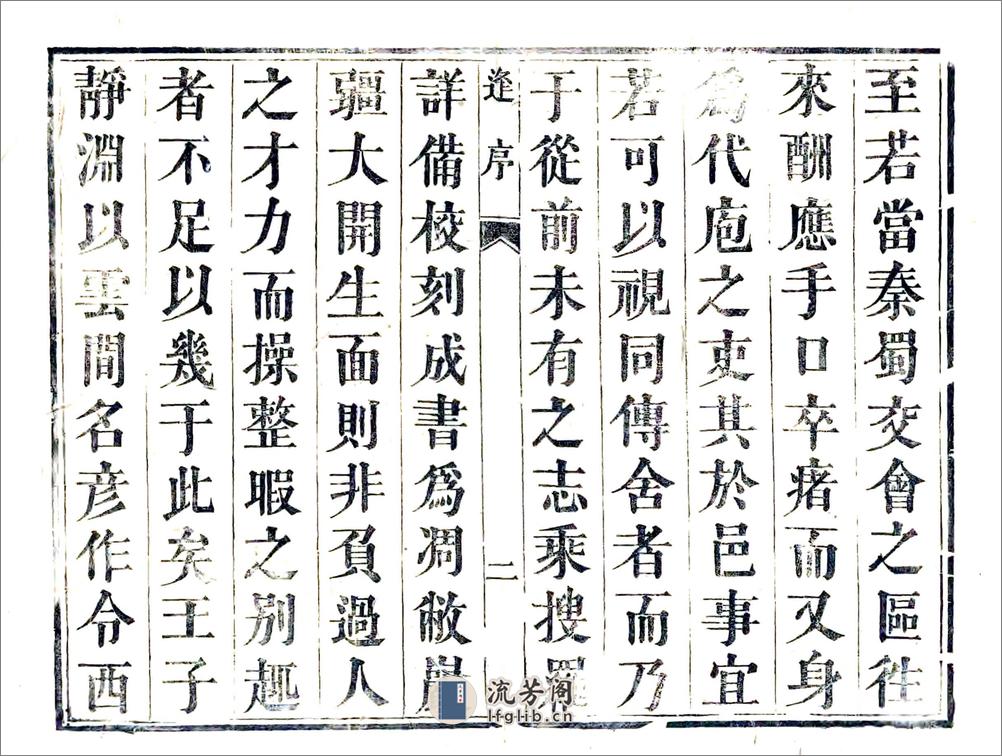 至若當秦蜀交會之區往
來酬應手口卒瘏而又身
爲代庖之吏其於邑事宜
若可以視同傳舍者而乃
于從前未有之志乘搜羅
逢序
二
詳備校刻成書爲凋敝
疆大開生面則非負過人
之才力而操整暇之別趣
者不足以幾于此矣王子
靜淵以雲間名彦作令西
流芳阁
lfglib.cn